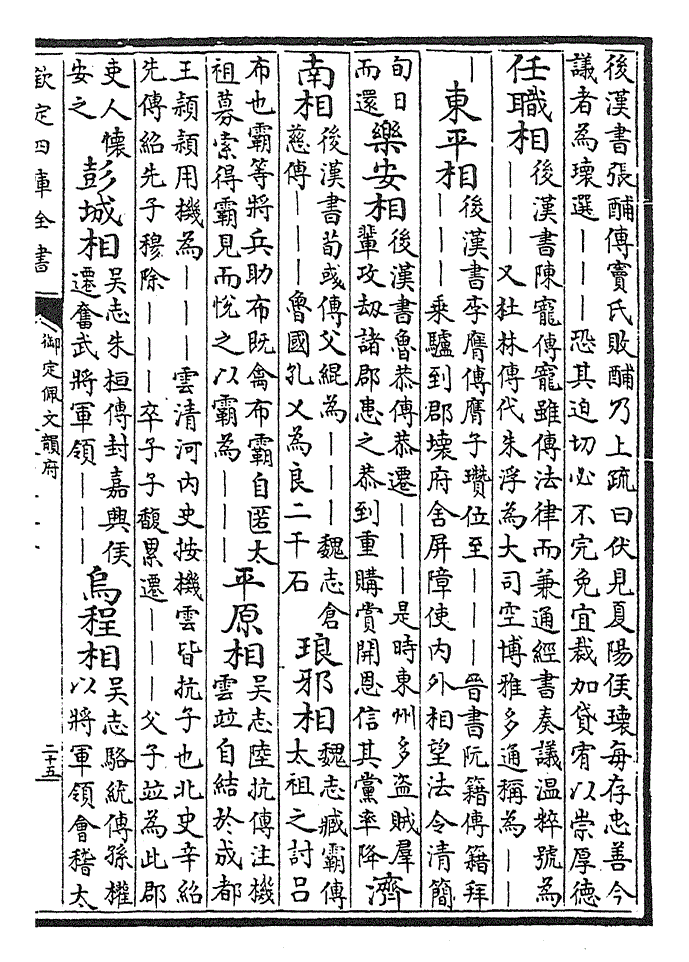 後漢書張酺傳竇氏敗酺乃上疏曰伏見夏陽侯瓌每存忠善今
議者為瓌選———恐其迫切必不完免宜裁加貸宥以崇厚德
任職相
後漢書陳寵傳寵雖傳法律而兼通經書奏議温粹號為
———又杜林傳代朱浮為大司空博雅多通稱為——
—
東平相
後漢書李膺傳膺子瓚位至———晉書阮籍傳籍拜
———乘驢到郡壞府舍屏障使内外相望法令清簡
旬日
而還
樂安相
後漢書魯恭傳恭遷———是時東州多盜賊羣
輩攻劫諸郡患之恭到重購賞開恩信其黨率降
濟
南相
後漢書荀彧傳父緄為———魏志倉
慈傳———魯國孔乂為良二千石
琅邪相
魏志臧霸傳
太祖之討吕
布也霸等將兵助布既禽布霸自匿太
祖募索得霸見而悦之以霸為———
平原相
吳志陸抗傳注機
雲竝自結於成都
王頴頴用機為———雲清河内史按機雲皆抗子也北史辛紹
先傳紹先子穆除———卒子子馥累遷———父子竝為此郡
吏人懷
安之
彭城相
吳志朱桓傳封嘉興侯
遷奮武將軍領———
烏程相
吳志駱統傳孫權
以將軍領會稽太
欽定四庫全書
御定佩文韻府
二十五